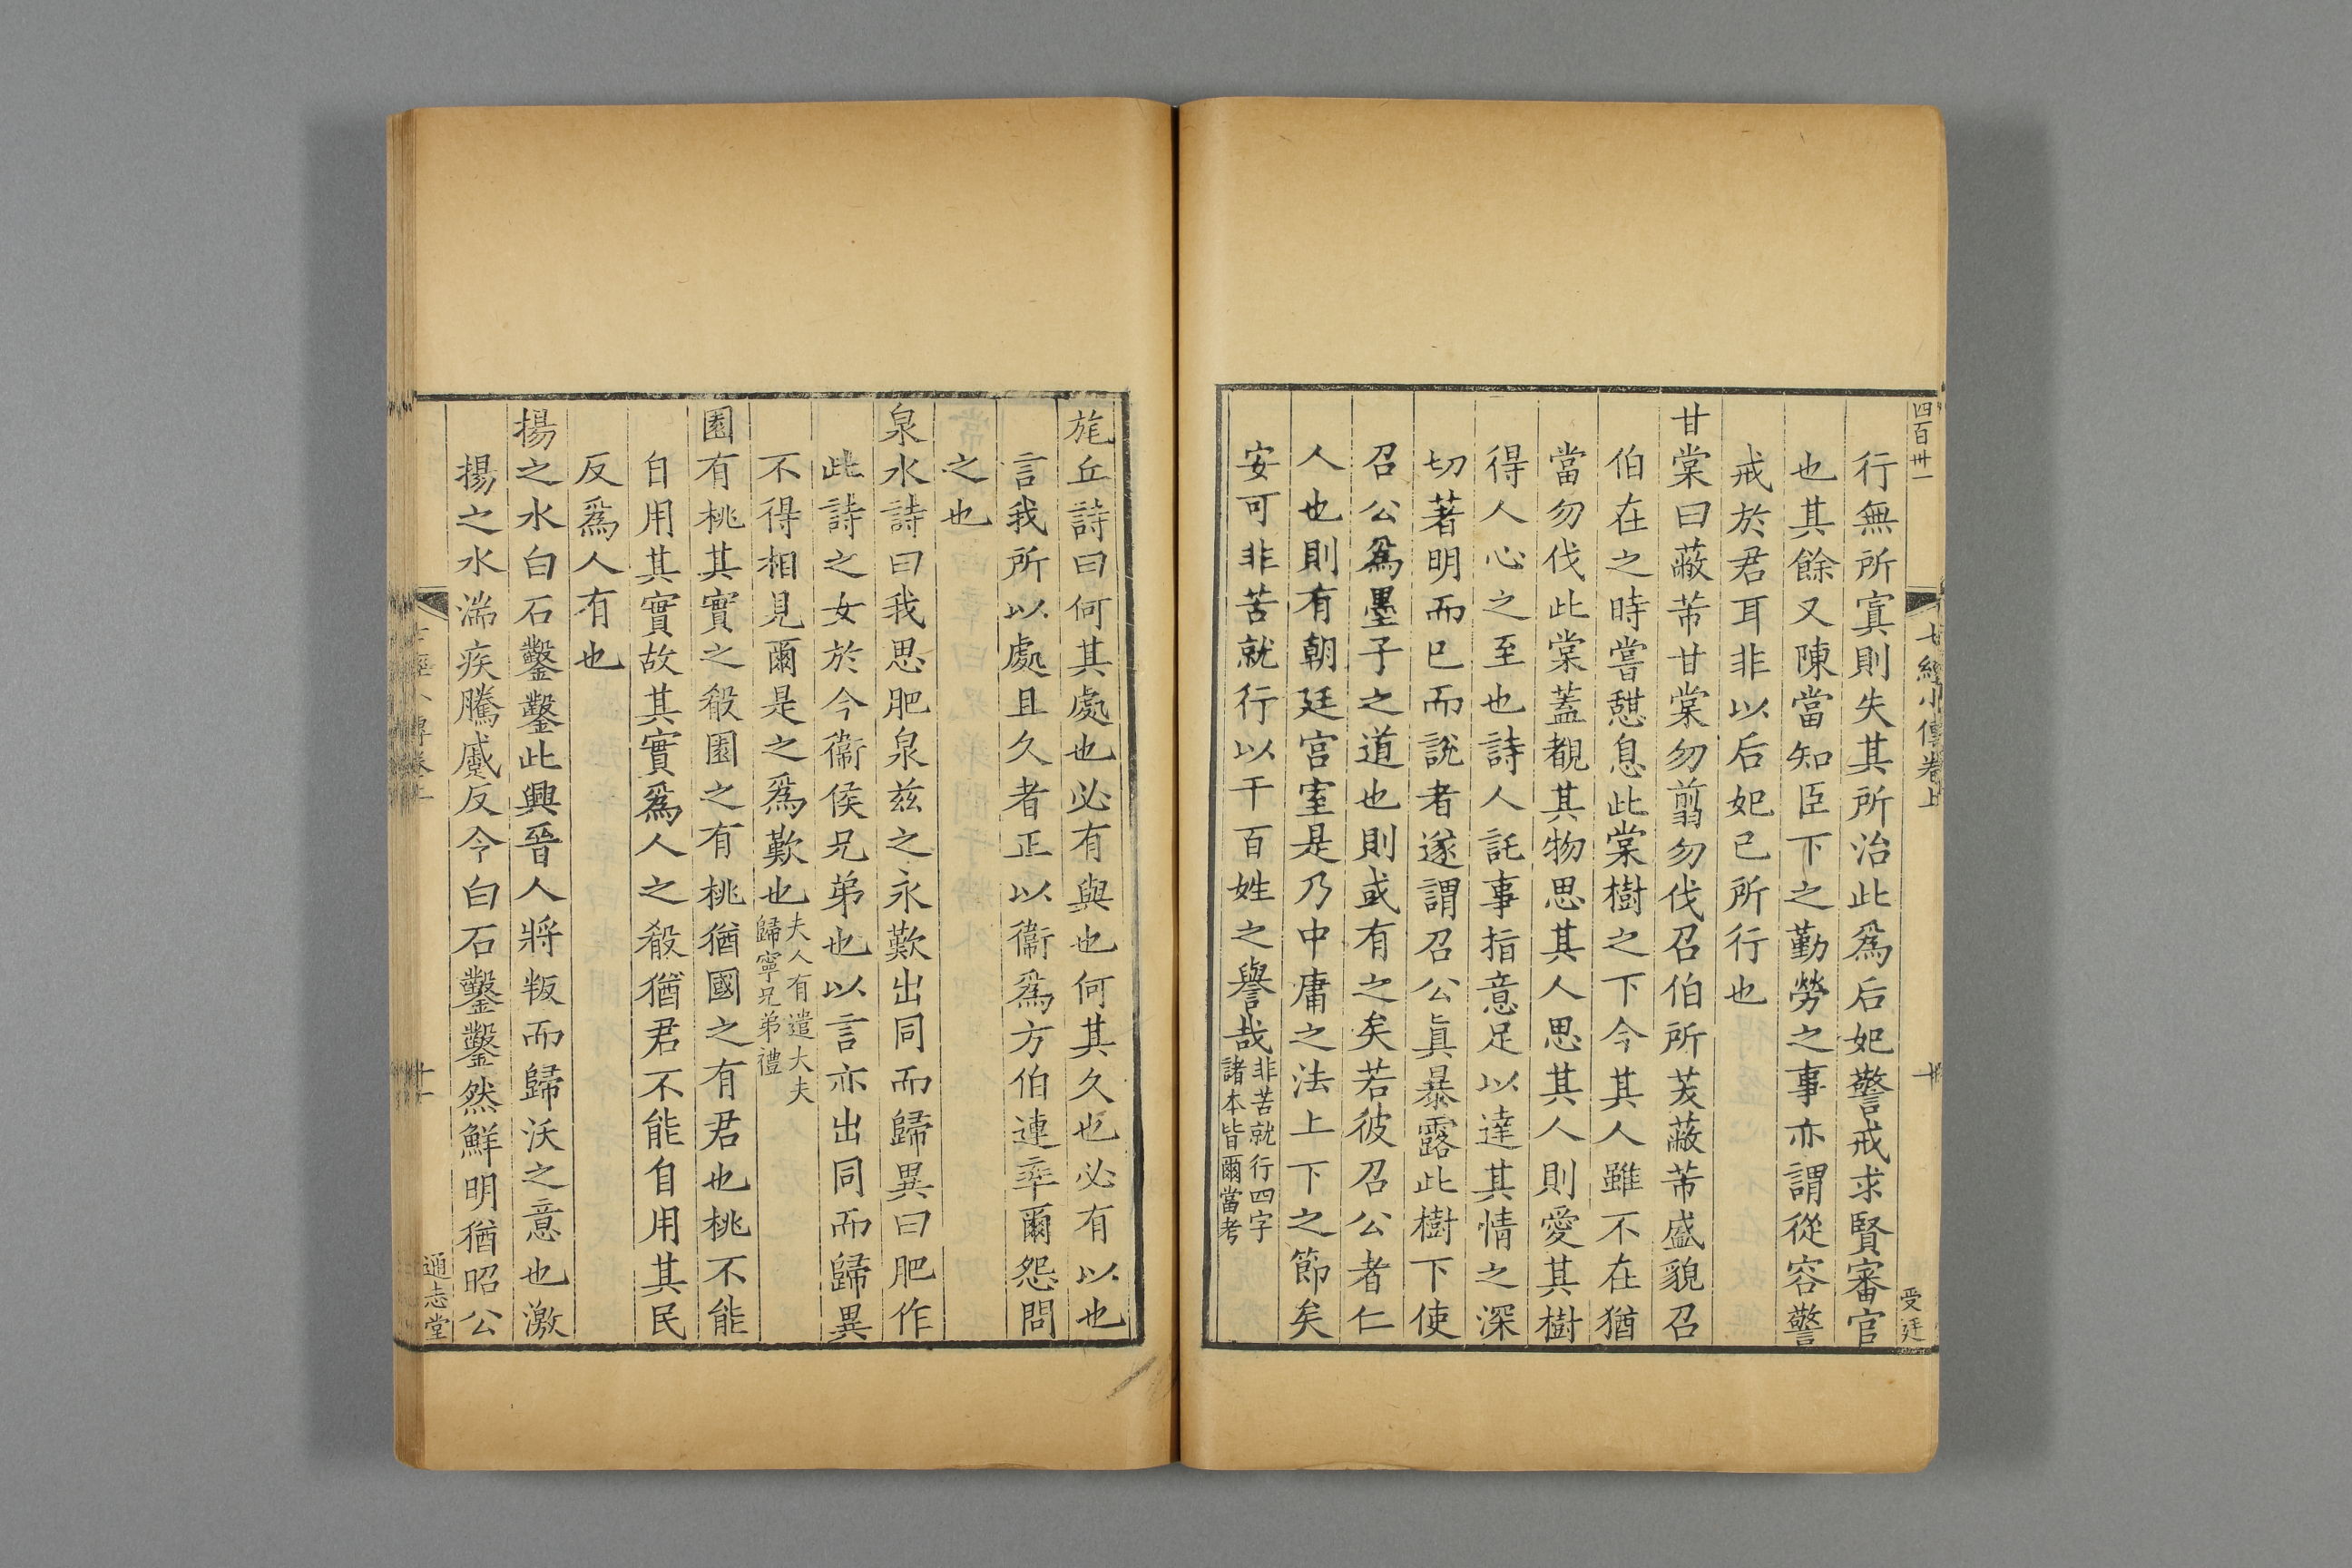 四百卅一
七經小傳卷上
十
受廷
行無所寘則失其所治此爲后妃警戒求賢審官
也其餘又陳當知臣下之勤勞之事亦謂從容警
戒於君耳非以后妃已所行也
甘棠曰蔽芾甘棠勿翦勿伐召伯所茇蔽芾盛貌召
伯在之時嘗憇息此棠樹之下今其人雖不在猶
當勿伐此棠蓋覩其物思其人思其人則愛其樹
得人心之至也詩人託事指意足以達其情之深
切著明而已而說者遂謂召公眞暴露此樹下使
召公爲墨子之道也則或有之矣若彼召公者仁
人也則有朝廷宮室是乃中庸之法上下之節矣
安可非苦就行以干百姓之譽哉非苦就行四字
諸本皆爾當考
旄丘詩曰何其處也必有與也何其久也必有以也
言我所以處且久者正以衞爲方伯連率爾怨問
之也
泉水詩曰我思肥泉茲之永歎出同而歸異曰肥作
此詩之女於今衞侯兄弟也以言亦出同而歸異
不得相見爾是之爲歎也夫人有遣大夫
歸寧兄弟禮
園有桃其實之殽園之有桃猶國之有君也桃不能
自用其實故其實爲人之殽猶君不能自用其民
反爲人有也
揚之水白石鑿鑿此興晉人將叛而歸沃之意也激
揚之水湍疾騰蹙反令白石鑿鑿然鮮明猶昭公
七經小傳卷上
十一
通志堂